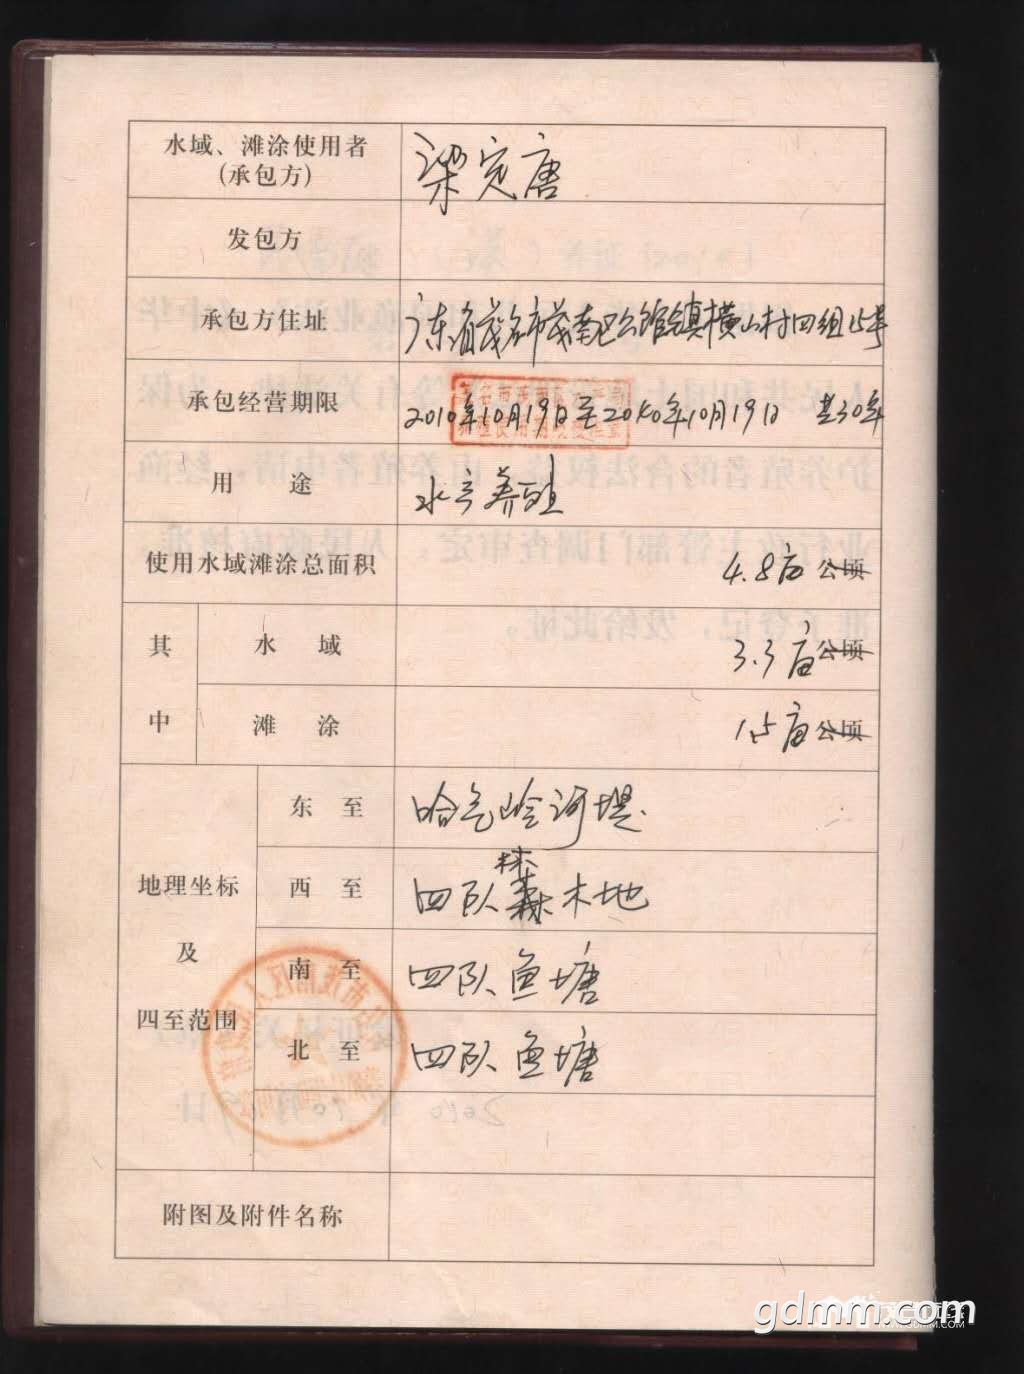 水域、滩涂使用者
(承包方)
梁宪唐
发包方
承包方住址
广东省茂名市茂南区公馆镇横山村四组15号
承包经营期限
2010年10月19日至2040年10月19日 共30年
用 途
水产养殖
使用水域滩涂总面积
4.8亩 公顷
其
中
水 域
3.3亩 公顷
滩 涂
1.5亩 公顷
地理坐标
及
四至范围
东 至
河堤
西 至
四队 林 木地
南 至
四队鱼塘
北 至
四队鱼塘
附图及附件名称
gdmm.com